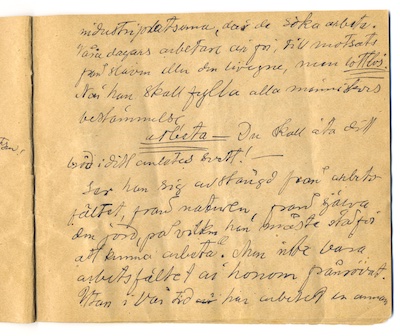 industripalatserna, där de söka arbeta.
Våra dagars arbetare är fri, till motsats
från slaven eller den livegne, men lottlös.
När han skall fylla alla människors
bestämmelse
arbeta — Du skall äta ditt
bröd i ditt anletes svett! —
Ser han sig avstängd från arbets-
fältet, från naturen, från själva
den jord, på vilken han måste stå för
att kunna arbeta. Men inte bara
arbetsfältet är honom frånrövat.
Utan i vår tid har arbetet en annan